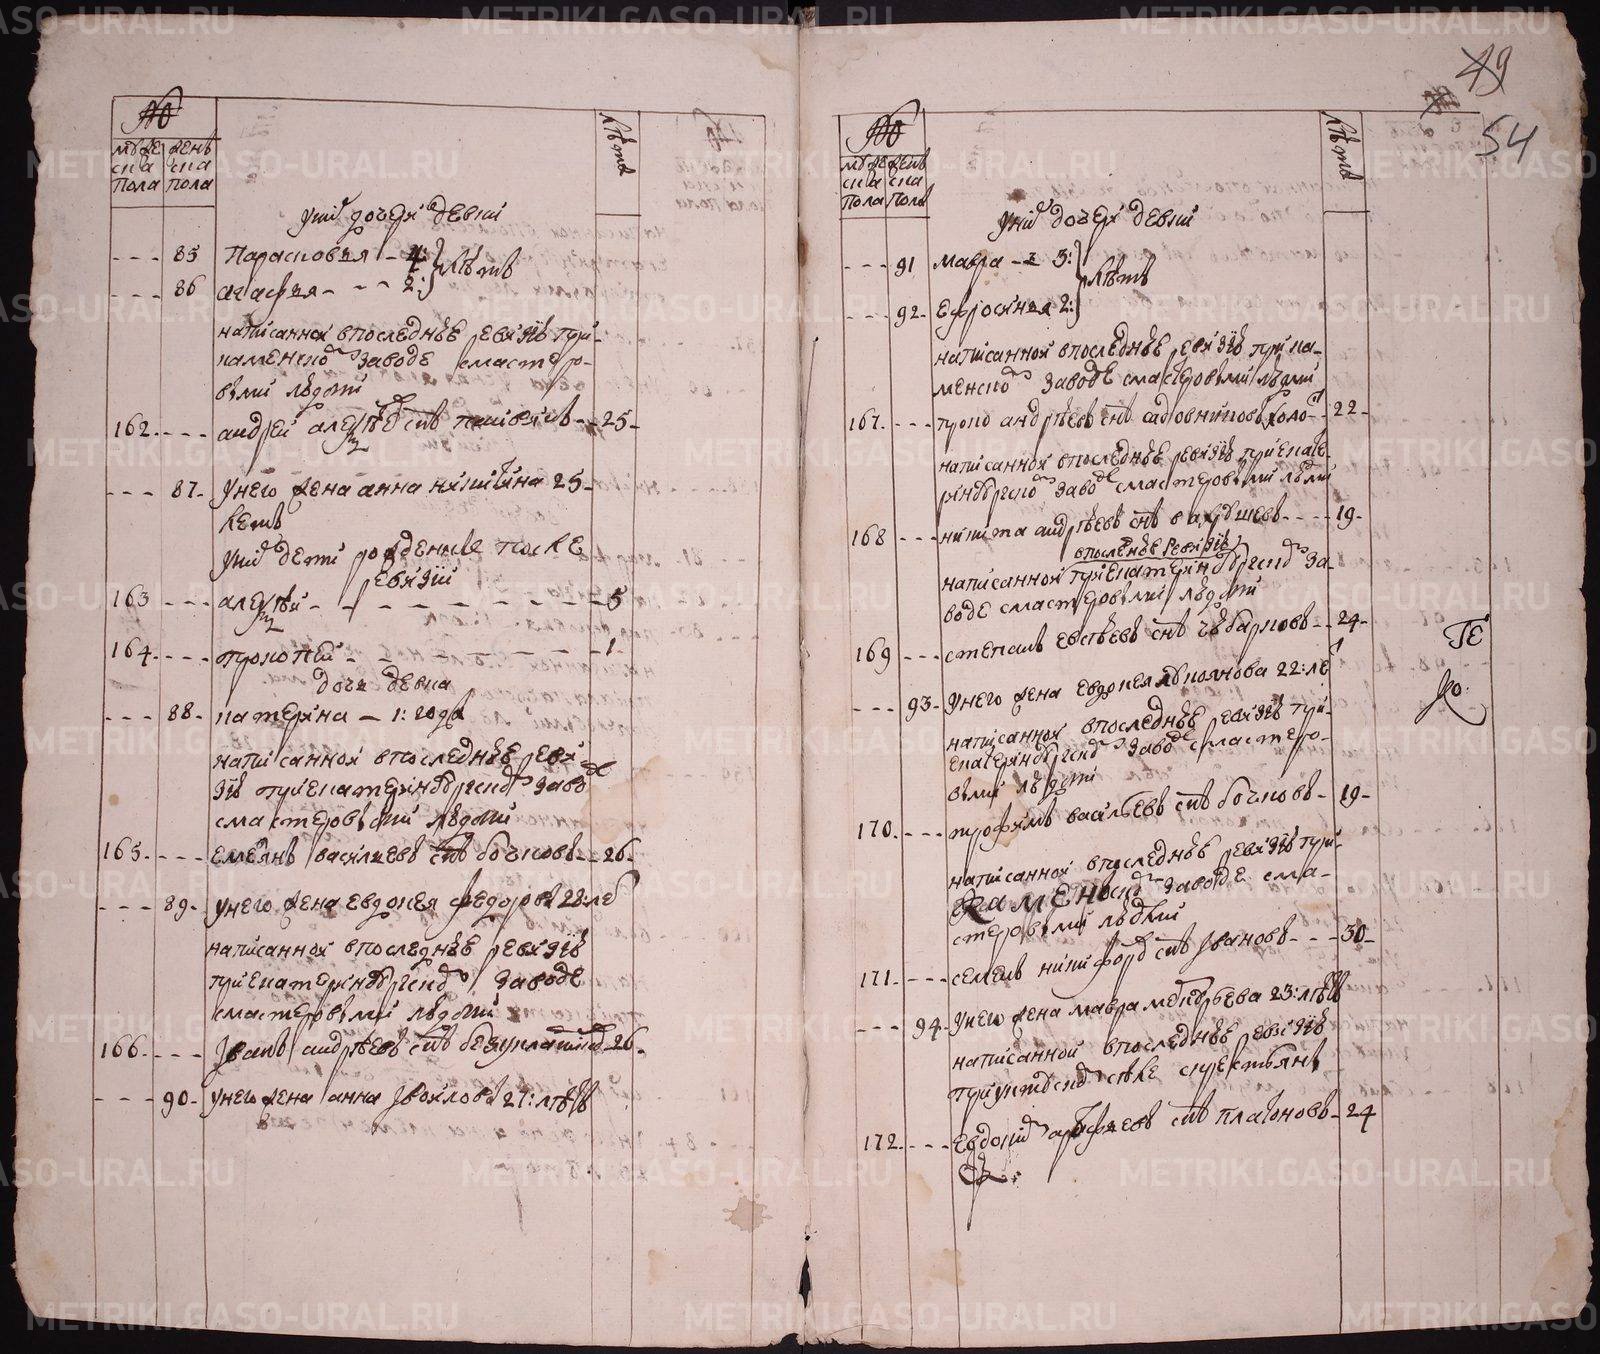 №
мужеска пола
женска пола
лета
у них дочери девки
85 Парасковья - 4:
86 агафья - - - 2: } летъ
написанной впоследнѣе ревизiѣ при
каменскомъ заводе смастеро-
выми людми
162. андрей алексѣевъ снъ 25
87. унего жена анна никитина 25
летъ
уних дети рожденые после
ревизiи
163 алексѣй 5
164. прокопей 1
дочь девка
88. катерина - 1: года
написанной впоследнѣе реви
зiѣ приекатерiнбурскомъ заводе
смастеровыми людми
165. емелянъ васильевъ снъ бочковъ - 26
89. унего жена евдокея федорова 28: лет
написанной впоследнѣе ревизiѣ
приекатерiнбурскомъ заводе
смастеровыми людми
166. Иванъ андрѣевъ снъ безукладниковъ 26
90. унего жена анна 27: летъ
49
54
№
мужеска пола
женска пола
лета
уних дочери девки
91 мавра - 3:
92. Ефросинья 2: } летъ
написанной впоследнѣе ревизiѣ прика-
менскомъ заводе смастеровыми людми
167. андрѣевъ снъ садовниковъ холостъ 22
написанной впоследнѣе ревизiѣ приекате-
рiнбурскомъ заводе смастеровыми людми
168 никита андрѣевъ снъ вахрушевъ 19
впоследнѣе ревизiѣ
написанной приекатерiнбурскомъ за-
воде смастеровыми людми
169 степанъ евсѣевъ снъ чюбарковъ 24
93. унего жена евдокея 22: лет
написанной впоследнѣе ревизiѣ при-
екатерiнбурскомъ заводе смастеро-
выми людми
170. трофимъ васильевъ снъ бочковъ 19
написанной впоследнѣе ревизiѣ при
Каменскомъ заводе сма-
стеровыми людми
171. семенъ никифоровъ снъ Ивановъ 30
94. унего жена мавра 23: летъ
написанной впоследнѣе ревизiѣ
приуктускомъ селе скрестьяны
172. Евдокимъ снъ платоновъ 24
METRIKI.GASO-URAL.RU